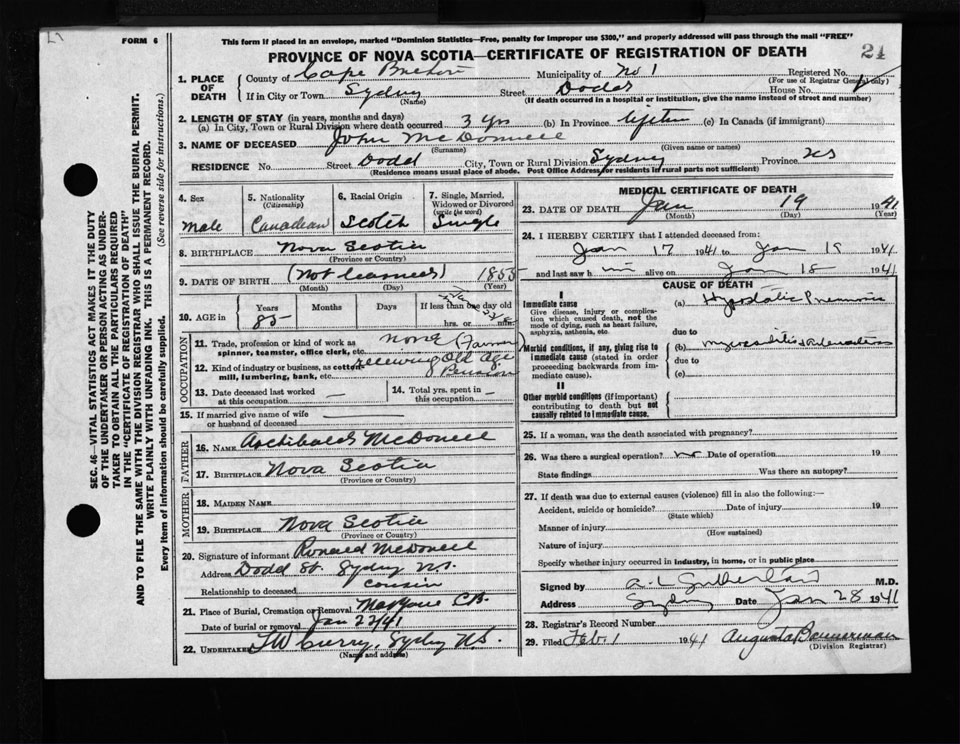 FORM 6
This form if placed in an envelope, marked "Dominion Statistics—Free, penalty for improper use $300," and properly addressed will pass through the mail "FREE"
PROVINCE OF NOVA SCOTIA—CERTIFICATE OF REGISTRATION OF DEATH
21
1. PLACE OF DEATH
County of Cape Breton Municipality of No 1 Registered No.
(For use of Registrar General only)
If in City or Town Sydney Street Dodd House No.
(Name) (If death occurred in a hospital or institution, give the name instead of street and number)
2. LENGTH OF STAY (in years, months and days)
(a) In City, Town or Rural Division where death occurred 3 yrs (b) In Province Lifetime (c) In Canada (if immigrant)
3. NAME OF DECEASED John McDonnell
(Surname) (Given name or names)
RESIDENCE No. Street Dodd City, Town or Rural Division Sydney Province NS
(Residence means usual place of abode. Post Office Address for residents in rural parts not sufficient)
4. Sex
Male
5. Nationality
(Citizenship)
Canadian
6. Racial Origin
Scotch
7. Single, Married, Widowed or Divorced
(write the word)
Single
8. BIRTHPLACE Nova Scotia
(Province or Country)
9. DATE OF BIRTH (Not learned) 1855
(Month) (Day) (Year)
10. AGE in
Years Months Days If less than one day old
85 hrs. or min.
OCCUPATION
11. Trade, profession or kind of work as spinner, teamster, office clerk, etc. None (Farmer)
12. Kind of industry or business, as cotton mill, lumbering, bank, etc. receiving Old Age Pension
13. Date deceased last worked at this occupation —
14. Total yrs. spent in this occupation —
15. If married give name of wife or husband of deceased
FATHER
16. NAME Archibald McDonell
17. BIRTHPLACE Nova Scotia
(Province or Country)
MOTHER
18. MAIDEN NAME
19. BIRTHPLACE Nova Scotia
(Province or Country)
20. Signature of informant Ronald McDonell
Address Dodd St. Sydney N.S.
Relationship to deceased cousin
21. Place of Burial, Cremation or Removal C.B.
Date of burial or removal Jan 22/41
22. UNDERTAKER TW Curry, Sydney N.S.
(Name and address)
MEDICAL CERTIFICATE OF DEATH
23. DATE OF DEATH Jan 19 1941
(Month) (Day) (Year)
24. I HEREBY CERTIFY that I attended deceased from:
Jan 17 1941 to Jan 19 1941
and last saw him alive on Jan 18 1941
CAUSE OF DEATH
I
Immediate cause
Give disease, injury or complication which caused death, not the mode of dying, such as heart failure, asphyxia, asthenia, etc.
(a) Hypostatic Pneumonia
due to
Morbid conditions, if any, giving rise to immediate cause (stated in order proceeding backwards from immediate cause).
(b) myocarditis
due to
(c)
II
Other morbid conditions (if important) contributing to death but not causally related to immediate cause.
25. If a woman, was the death associated with pregnancy?
26. Was there a surgical operation? no Date of operation 19
State findings Was there an autopsy?
27. If death was due to external causes (violence) fill in also the following:—
Accident, suicide or homicide? Date of injury 19
(State which)
Manner of injury
(How sustained)
Nature of injury
Specify whether injury occurred in industry, in home, or in public place
Signed by A. L. Sutherland M.D.
Address Sydney Date Jan 28 1941
28. Registrar's Record Number
29. Filed Feb. 1 1941 Augusta Bannerman
(Division Registrar)
SEC. 46—VITAL STATISTICS ACT MAKES IT THE DUTY
OF THE UNDERTAKER OR PERSON ACTING AS UNDER-
TAKER TO OBTAIN ALL THE PARTICULARS REQUIRED
IN THE "CERTIFICATE OF REGISTRATION OF DEATH"
AND TO FILE THE SAME WITH THE DIVISION REGISTRAR WHO SHALL ISSUE THE BURIAL PERMIT.
WRITE PLAINLY WITH UNFADING INK. THIS IS A PERMANENT RECORD.
Every item of information should be carefully supplied. (See reverse side for instructions.)